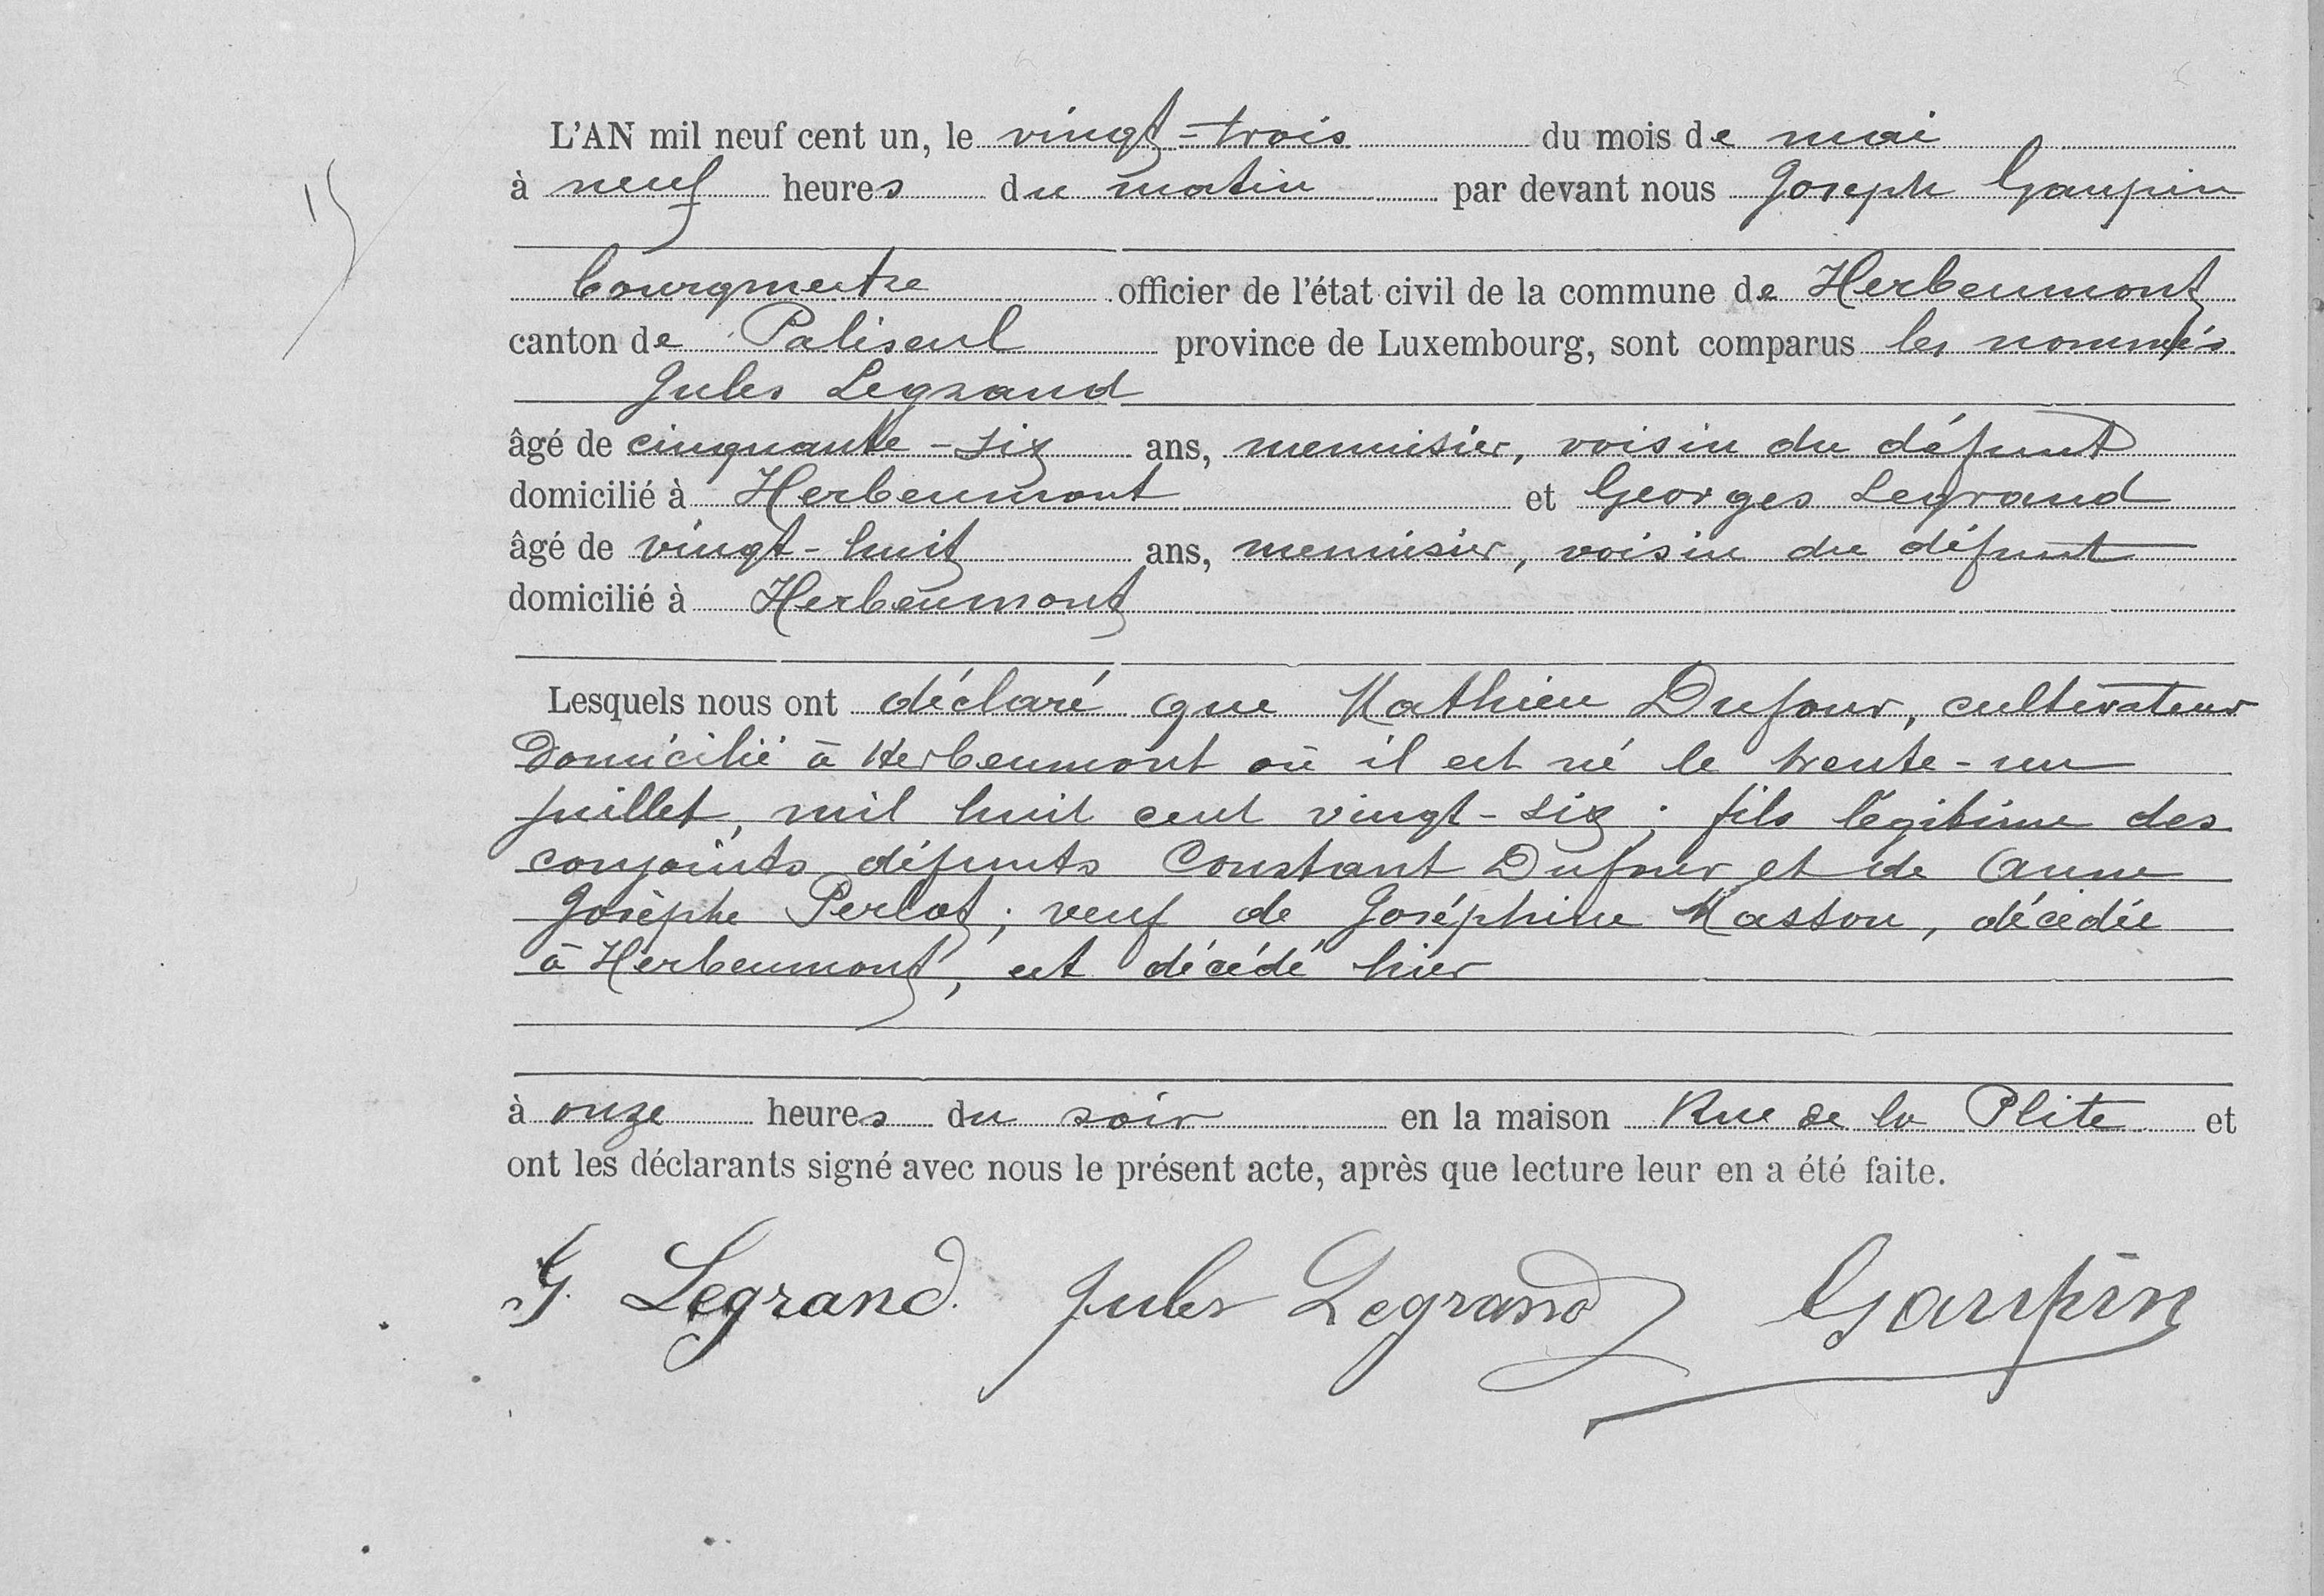 L'AN mil neuf cent un, le vingt-trois du mois de mai
à neuf heures du matin par devant nous Joseph Gaupin
bourgmestre officier de l'état civil de la commune de Herbeumont
canton de Paliseul province de Luxembourg, sont comparus les nommés
Jules Legrand
âgé de cinquante-six ans, menuisier, voisin du défunt
domicilié à Herbeumont et Georges Legrand
âgé de vingt-huit ans, menuisier, voisin du défunt
domicilié à Herbeumont
Lesquels nous ont déclaré que Mathieu Dufour, cultivateur
domicilié à Herbeumont où il est né le trente-un
juillet, mil huit cent vingt-six ; fils légitime des
conjoints défunts Constant Dufour et de Anne
Josèphe Perlot ; veuf de Joséphine Masson, décédée
à Herbeumont, est décédé hier
à onze heures du soir en la maison Rue de la Plite et
ont les déclarants signé avec nous le présent acte, après que lecture leur en a été faite.
G. Legrand. Jules Legrand Gaupin